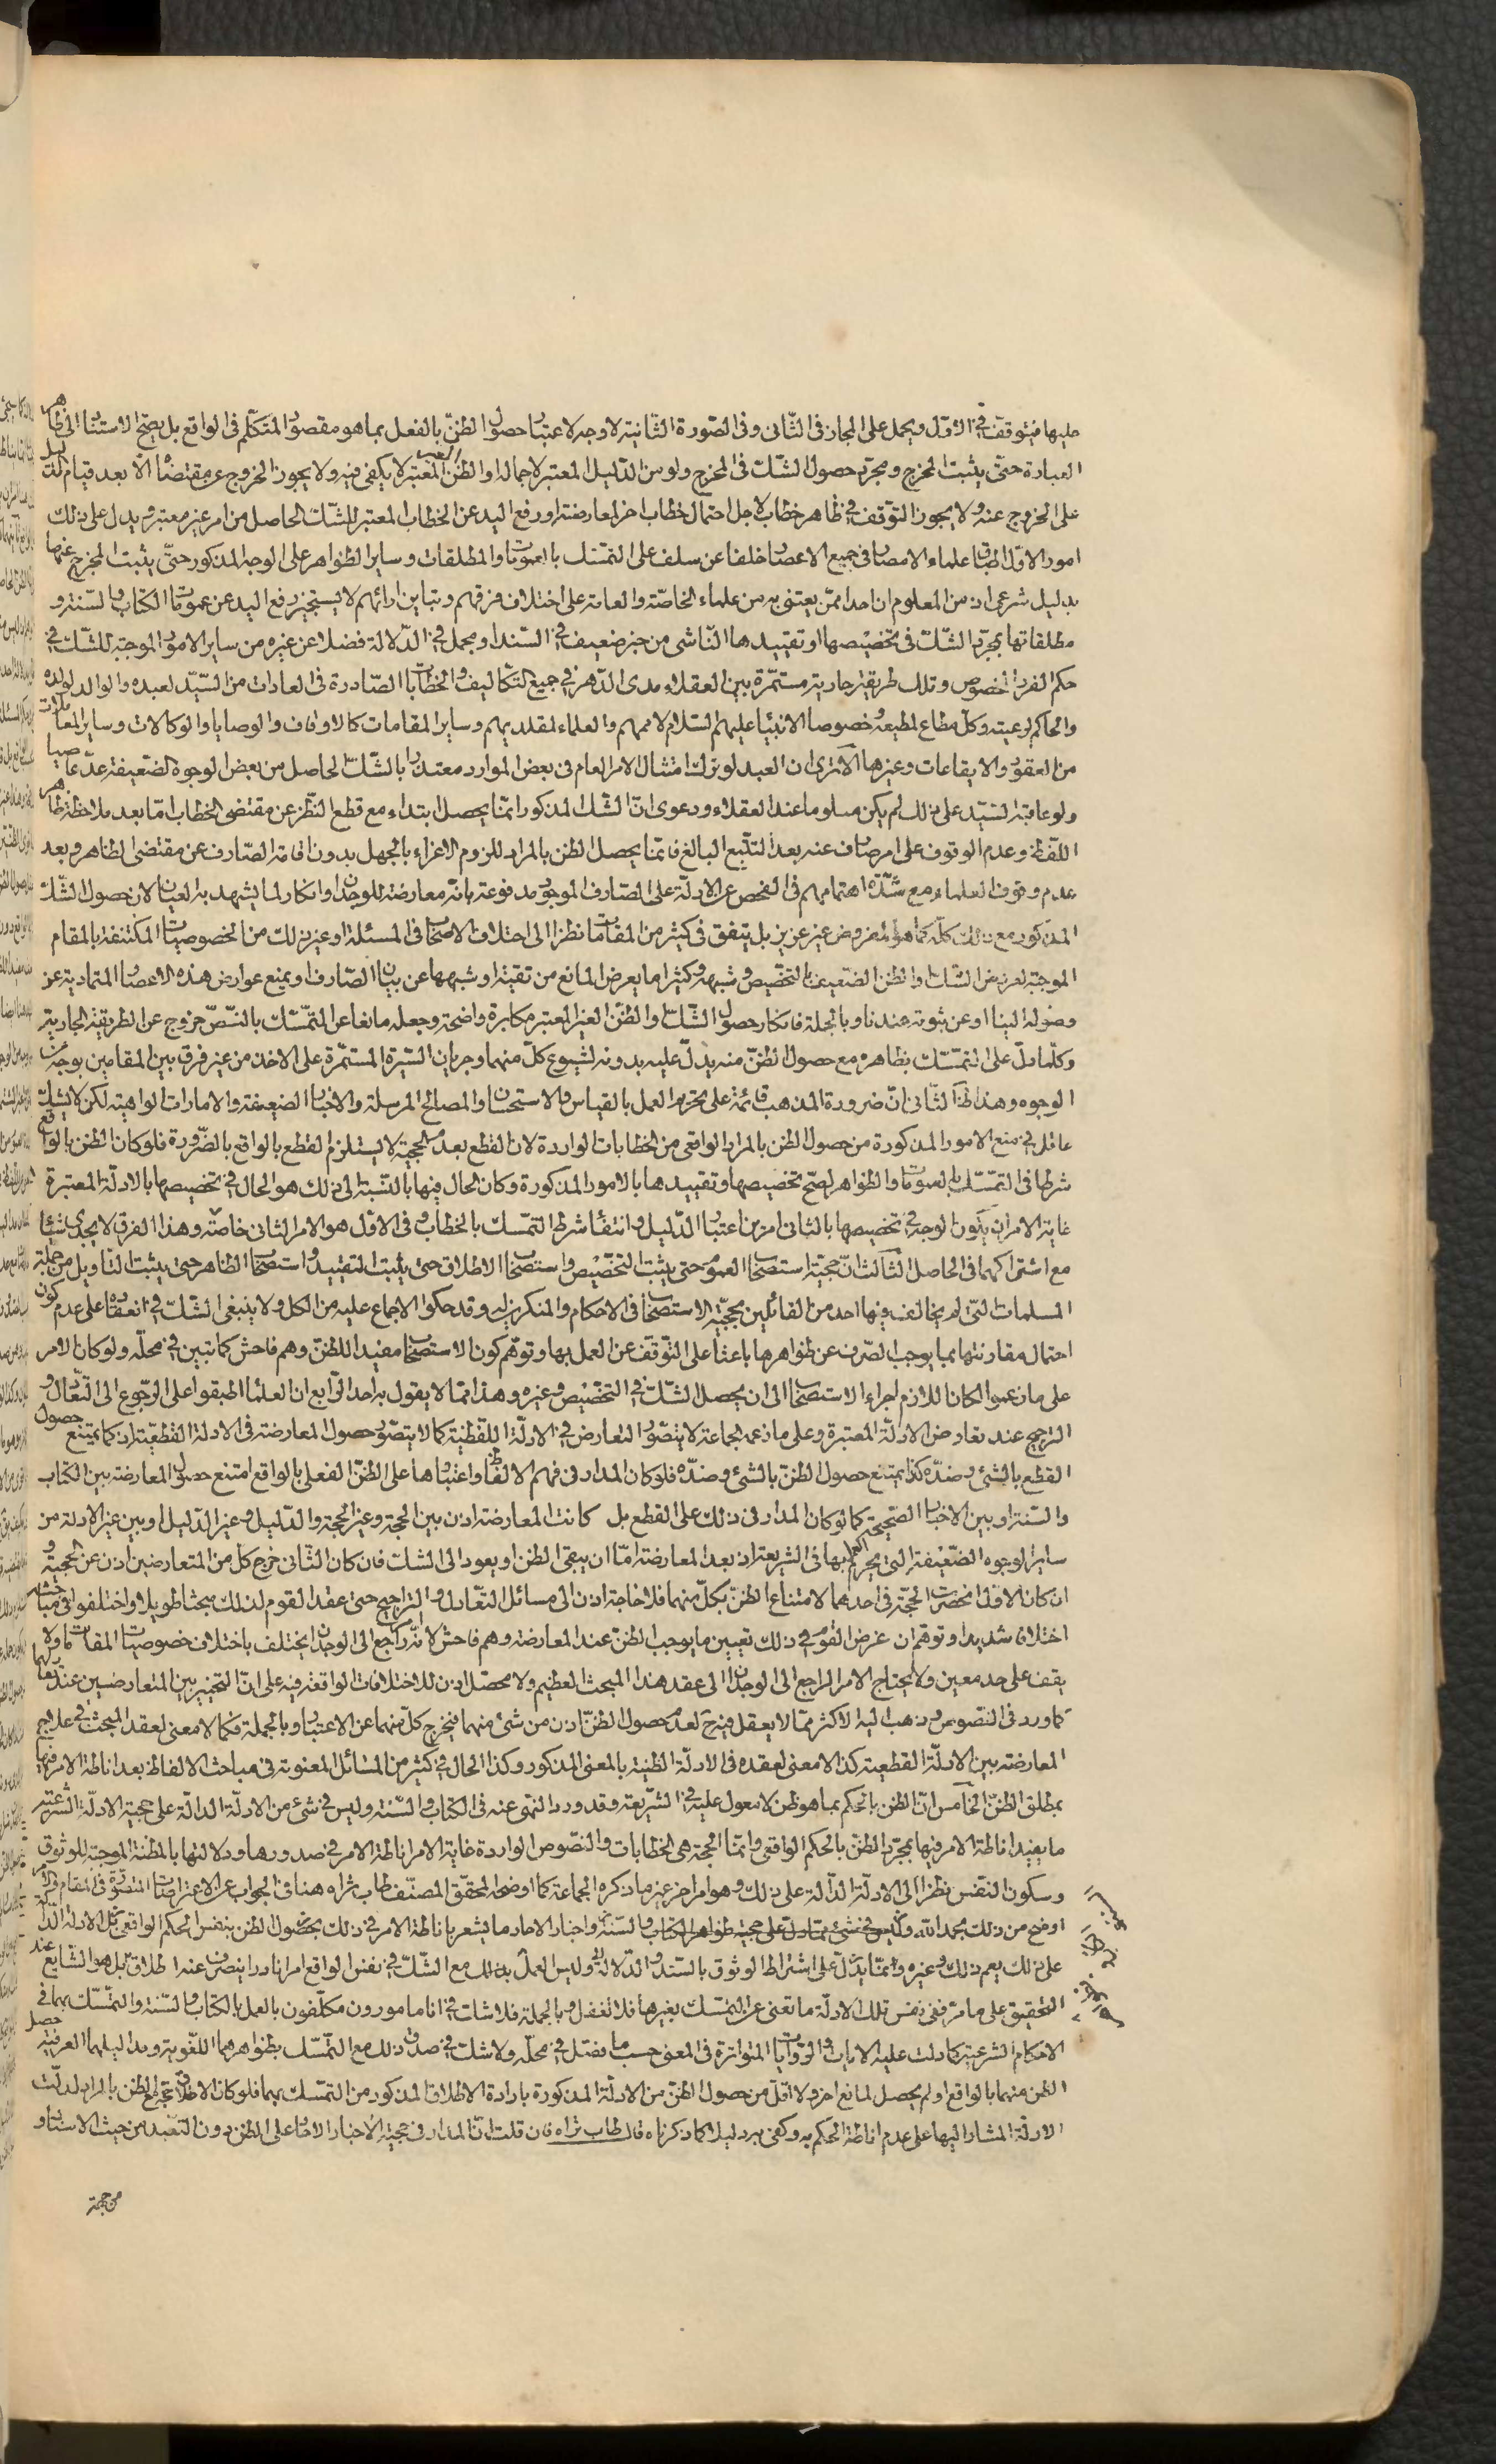 عليها فيتوقف في الاوّل ويحمل على المجاز فى الثّانى وفى الصّورة الثّانية لا وجه لاعتبار حصول الظنّ بالفعل بما هو مقصود المتكلّم فى الواقع بل يصحّ الاستناد الى ظاهر
العبادة حتّى يثبت المخرج ومجرّد حصول الشّك فى المخرج ولو من الدّليل المعتبر لاجماله او الظنّ الغير المعتبر لا يكفى فيه ولا يجوز الخروج عن مقتضاه الّا بعد قيام دليل
على الخروج عنه ولا يجوز التوقف في ظاهر خطاب لاجل احتمال خطاب اخر لمعارضته او رفع اليد عن الخطاب المعتبر للشّك الحاصل من امر غير معتبر ويدل على ذلك
امور الاوّل اطباق علماء الامصار فى جميع الاعصار خلفا عن سلف على التمسّك بالعمومات والمطلقات وساير الظواهر على الوجه المذكور حتّى يثبت المخرج عنها
بدليل شرعى اذ من المعلوم ان احدا ممّن يعتنى به من علماء الخاصّة والعامة على اختلاف فرقهم وتباين ارائهم لا يستجيز رفع اليد عن عمومات الكتاب والسّنة و
مطلقاتها بمجرّد الشّك فى تخصيصها او تقييدها النّاشى من خبر ضعيف في السّند او مجمل في الدّلالة فضلا عن غيره من ساير الامور الموجبة للشّك في
حكم الفرد المخصوص وتلك طريقة جارية مستمرّة بين العقلاء مدى الدّهر في جميع التّكاليف والخطابات الصّادرة فى العادات من السّيّد لعبده والوالد لولده
والحاكم لرعيته وكلّ مطاع لمطيعه خصوصا الانبياء عليهم السّلام لاممهم والعلماء لمقلديهم وساير المقامات كالاوقاف والوصايا والوكالات وساير المعاملات
من العقود والايقاعات وغيرها الا ترى ان العبد لو ترك امتثال الامر العام فى بعض الموارد معتذرا بالشّك الحاصل من بعض الوجوه الضّعيفة عدّ عاصيا
ولو عاقبه السّيّد على ذلك لم يكن ملوما عند العقلاء ودعوى انّ الشّك المذكور انّما يحصل ابتداء مع قطع النّظر عن مقتضى الخطاب امّا بعد ملاحظة ظاهر
اللّفظ وعدم الوقوف على امر صارف عنه بعد التتّبع البالغ فانّما يحصل الظن بالمراد للزوم الاغراء بالجهل بدون اقامة الصّارف عن مقتضى الظاهر وبعد
عدم وقوف العلماء مع شدّة اهتمامهم فى الفحص عن الادلّة على الصّارف الموجود مدفوعة بانّه معارضة للوجدان وانكار لما يشهد به العيان لان حصول الشّك
المذكور مع ذلك كلّه كما هو المفروض غير عزيز بل يتفق فى كثير من المقامات نظرا الى اختلاف الاصحاب فى المسئلة او غير ذلك من الخصوصيات المكتنفة بالمقام
الموجبة لعروض الشّك والظن الضّعيف بالتخصيص وشبهه وكثيرا ما يعرض المانع من تقية او شبهها عن بيان الصّارف او يمنع عوارض هذه الاعصار المتمادية عن
وصوله الينا او عن ثبوته عندنا وبالجملة فانكار حصول الشّك والظنّ الغير المعتبر مكابرة واضحة وجعله مانعا عن التمسّك بالنّصّ خروج عن الطريقة الجارية
وكلّما دلّ على التمسّك بظاهره مع حصول الظنّ منه يدلّ عليه بدونه لشيوع كلّ منهما وجريان السّيرة المستمّرة على الاخذ من غير فرق بين المقامين بوجه من
الوجوه وهذا ظاهر الثّانى انّ ضرورة المذهب قائمة على تحريم العمل بالقياس والاستحسان والمصالح المرسلة والاخبار الضعيفة والامارات الواهية لكن لا يشك
عاقل في منع الامور المذكورة من حصول الظن بالمراد الواقعى من الخطابات الواردة لان القطع بعدم الحجية لا يستلزم القطع بالواقع بالضّرورة فلو كان الظن بالواقع
شرطا فى التمسّك بالعمومات والظواهر لصحّ تخصيصها وتقييدها بالامور المذكورة وكان الحال فيها بالنّسبة الى ذلك هو الحال في تخصيصها بالادلّة المعتبرة
غاية الامر ان يكون الوجه في تخصيصها بالثانى امرين اعتبار الدّليل وانتفاء شرط التمسّك بالخطاب وفى الاوّل هو الامر الثانى خاصّة وهذا الفرق لا يجدى شيئا
مع اشتراكهما فى الحاصل الثّالث انّ حجية استصحاب العموم حتى يثبت التخصيص واستصحاب الاطلاق حتى يثبت التقييد واستصحاب الظاهر حتى يثبت التاويل من جملة
المسلمات الّتى لم يخالف فيها احد من القائلين بحجيّة الاستصحاب فى الاحكام والمنكرين له وقد حكوا الاجماع عليه من الكل ولا ينبغى الشّك في انعقاده على عدم كون
احتمال مقارنتها بما يوجب الصّرف عن ظواهرها باعثا على التّوقف عن العمل بها وتوهّم كون الاستصحاب مفيدا للظنّ وهم فاحش كما تبين في محلّه ولو كان الامر
على ما زعموا لكان اللازم اجراء الاستصحاب الى ان يحصل الشّك في التخصيص وغيره وهذا ممّا لا يقول به احد الرّابع ان العلماء اطبقوا على الرّجوع الى التّعادل و
الترجيح عند تعارض الادلّة المعتبرة وعلى ما زعمه الجماعة لا يتصوّر التعارض في الادلّة اللفظيّة كما لا يتصوّر حصول المعارضة فى الادلة القطعيّة اذ كما يمتنع حصول
القطع بالشّئ وضدّه كذا يمتنع حصول الظنّ بالشّئ وضدّه فلو كان المدار فى فهم الالفاظ واعتبارها على الظنّ الفعلى بالواقع امتنع حصول المعارضة بين الكتاب
والسّنة او بين الاخبار الصّحيحة كما لو كان المدار فى ذلك على القطع بل كانت المعارضة اذن بين الحجة وغير الحجة والدّليل وغير الدّليل او بين غير الادلة من
ساير الوجوه الضّعيفة التى يحرم العمل بها فى الشريعة اذ بعد المعارضة امّا ان يبقى الظن او يعود الى الشك فان كان الثّانى خرج كل من المتعارضين اذن عن الحجية و
ان كان الاوّل انحصرت الحجّة فى احدهما لامتناع الظنّ بكلّ منهما فلا حاجة اذن الى مسائل التّعادل والتراجيح حتى عقد القوم لذلك مبحثا طويلا واختلفوا فى مباحثه
اختلافا شديدا وتوهّم ان غرض القوم في ذلك تعيين ما يوجب الظنّ عند المعارضة وهم فاحش لانّه راجع الى الوجدان يختلف باختلاف خصوصيات المقامات ولا
يقف على حد معين ولا يحتاج الامر الراجع الى الوجدان الى عقد هذا المبحث العظيم ولا محصّل اذن للاختلافات الواقعة فيه على انّ التّخيير بين المتعارضين عند تعادلهما
كما ورد فى النّصوص وذهب اليه الاكثر ممّا لا يعقل فيه ح لعدم حصول الظنّ اذن من شئ منهما فيخرج كلّ منهما عن الاعتبار وبالجملة فكما لا معنى لعقد المبحث في علاج
المعارضة بين الادلّة القطعية كذا لا معنى لعقده فى الادلّة الظنيّة بالمعنى المذكور وكذا الحال في كثير من المسائل المعنونة فى مباحث الالفاظ بعد اناطة الامر فيها
بمطلق الظنّ الخامس انّ الظن بالحكم بما هو ظن لا معول عليه في الشّريعة وقد ورد النّهى عنه فى الكتاب والسّنة وليس في شئ من الادلّة الدالّة على حجية الادلّة الشّرعيّة
ما يفيد اناطة الامر فيها بمجرّد الظنّ بالحكم الواقعى وانّما الحجة هى الخطابات والنّصوص الواردة غاية الامر اناطة الامر في صدورها ودلالتها بالمظنّة الموجبة للوثوق
وسكون النّفس نظرا الى الادلّة الدّالة على ذلك وهو امر اخر غير ما ذكره الجماعة كما اوضحه المحقّق المصنّف طاب ثراه هنا فى الجواب عن الاعتراضات المتصوّرة فى المقام والامر
اوضح من ذلك بحمد اللّه وليس في شئ ممّا دلّ على حجية ظواهر الكتاب والسّنة واخبار الاحاد ما يشعر باناطة الامر في ذلك بحصول الظن بنفس الحكم الواقعى بل الادلة الدّالة
على ذلك يعم ذلك وغيره وانّما يدلّ على اشتراط الوثوق بالسّند والدّلالة وليس العمل بذلك مع الشّك في نفس الواقع امرا نادرا ينصرف عنه الاطلاق بل هو الشّايع عند
التّحقيق على ما مرّ ففى نفس تلك الادلّة ما تغنى عن التمسّك بغيرها فلا تغفل وبالجملة فلا شك في انا مامورون مكلّفون بالعمل بالكتاب والسّنة والتمسّك بهما فى
الاحكام الشّرعية كما دلت عليه الايات والروايات المتواترة فى المعنى حسب ما فصّل في محلّه ولا شك في صدق ذلك مع التمسّك بظواهرهما اللّغوية ومداليلهما العرفية حصل
الظن منهما بالواقع او لم يحصل لمانع اخر ولا اقلّ من حصول الظنّ من الادلّة المذكورة بارادة الاطلاق المذكور من التمسّك بهما فلو كان الاطلاق بمجرّد الظن بالمراد لدلّت
الادلّة المشار اليها على عدم اناطة الحكم به وكفى به دليلا كما ذكرناه قال طاب ثراه فان قلت انّ المدار فى حجية الاخبار الاحاد على الظن دون التّعبد من حيث الاسناد و
من جهة